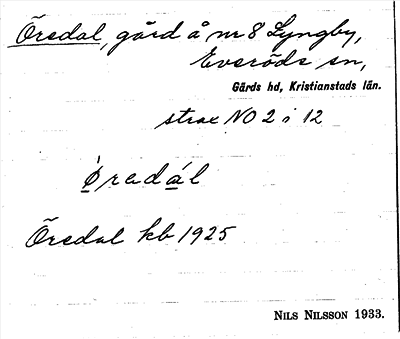 Öredal, gård å nr 8 Lyngby,
Everöds sn,
Gärds hd, Kristianstads län.
strax NO 2 i 12
Ø̀redál
Öredal kb 1925
NILS NILSSON 1933.